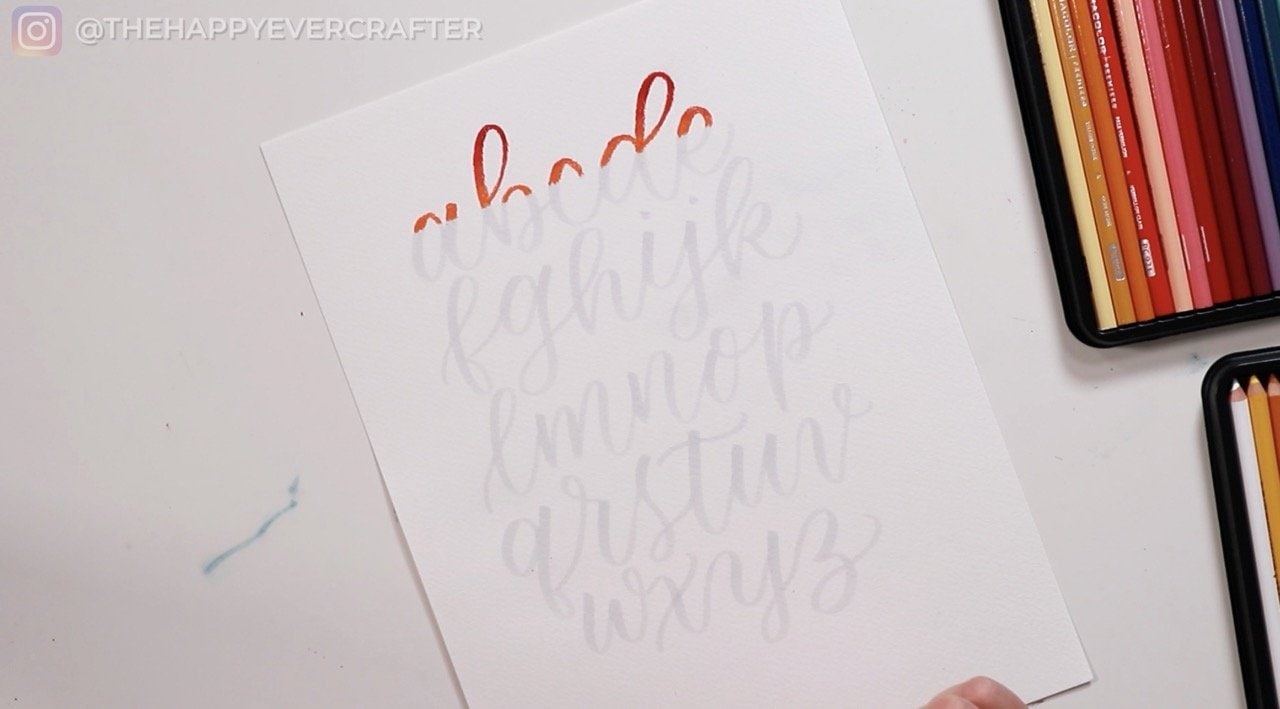 @THEHAPPYEVERCRAFTER
abcde
fghijk
lmnop
qrstuv
wxyz